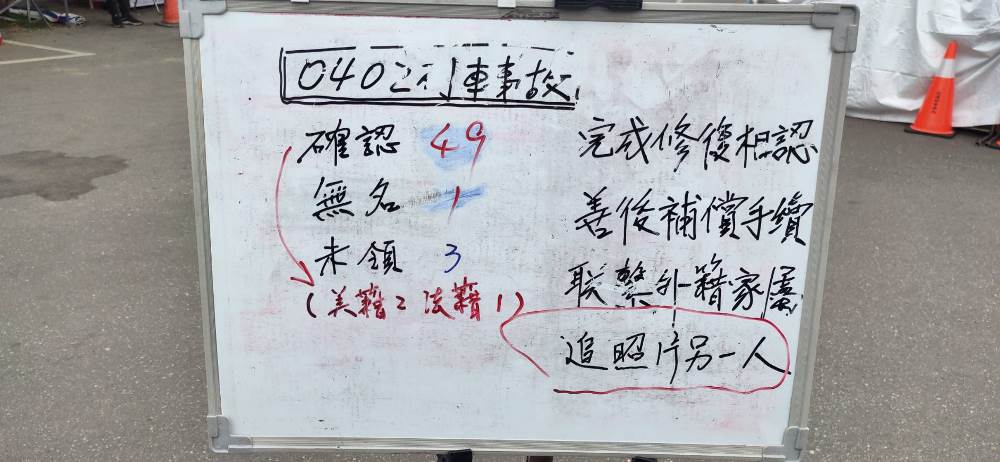 0402列車事故
確認 49
無名 1
未領 3
(美籍2 法籍1)
完成修復相認
善後補償手續
联繫外籍家屬
追照片另一人